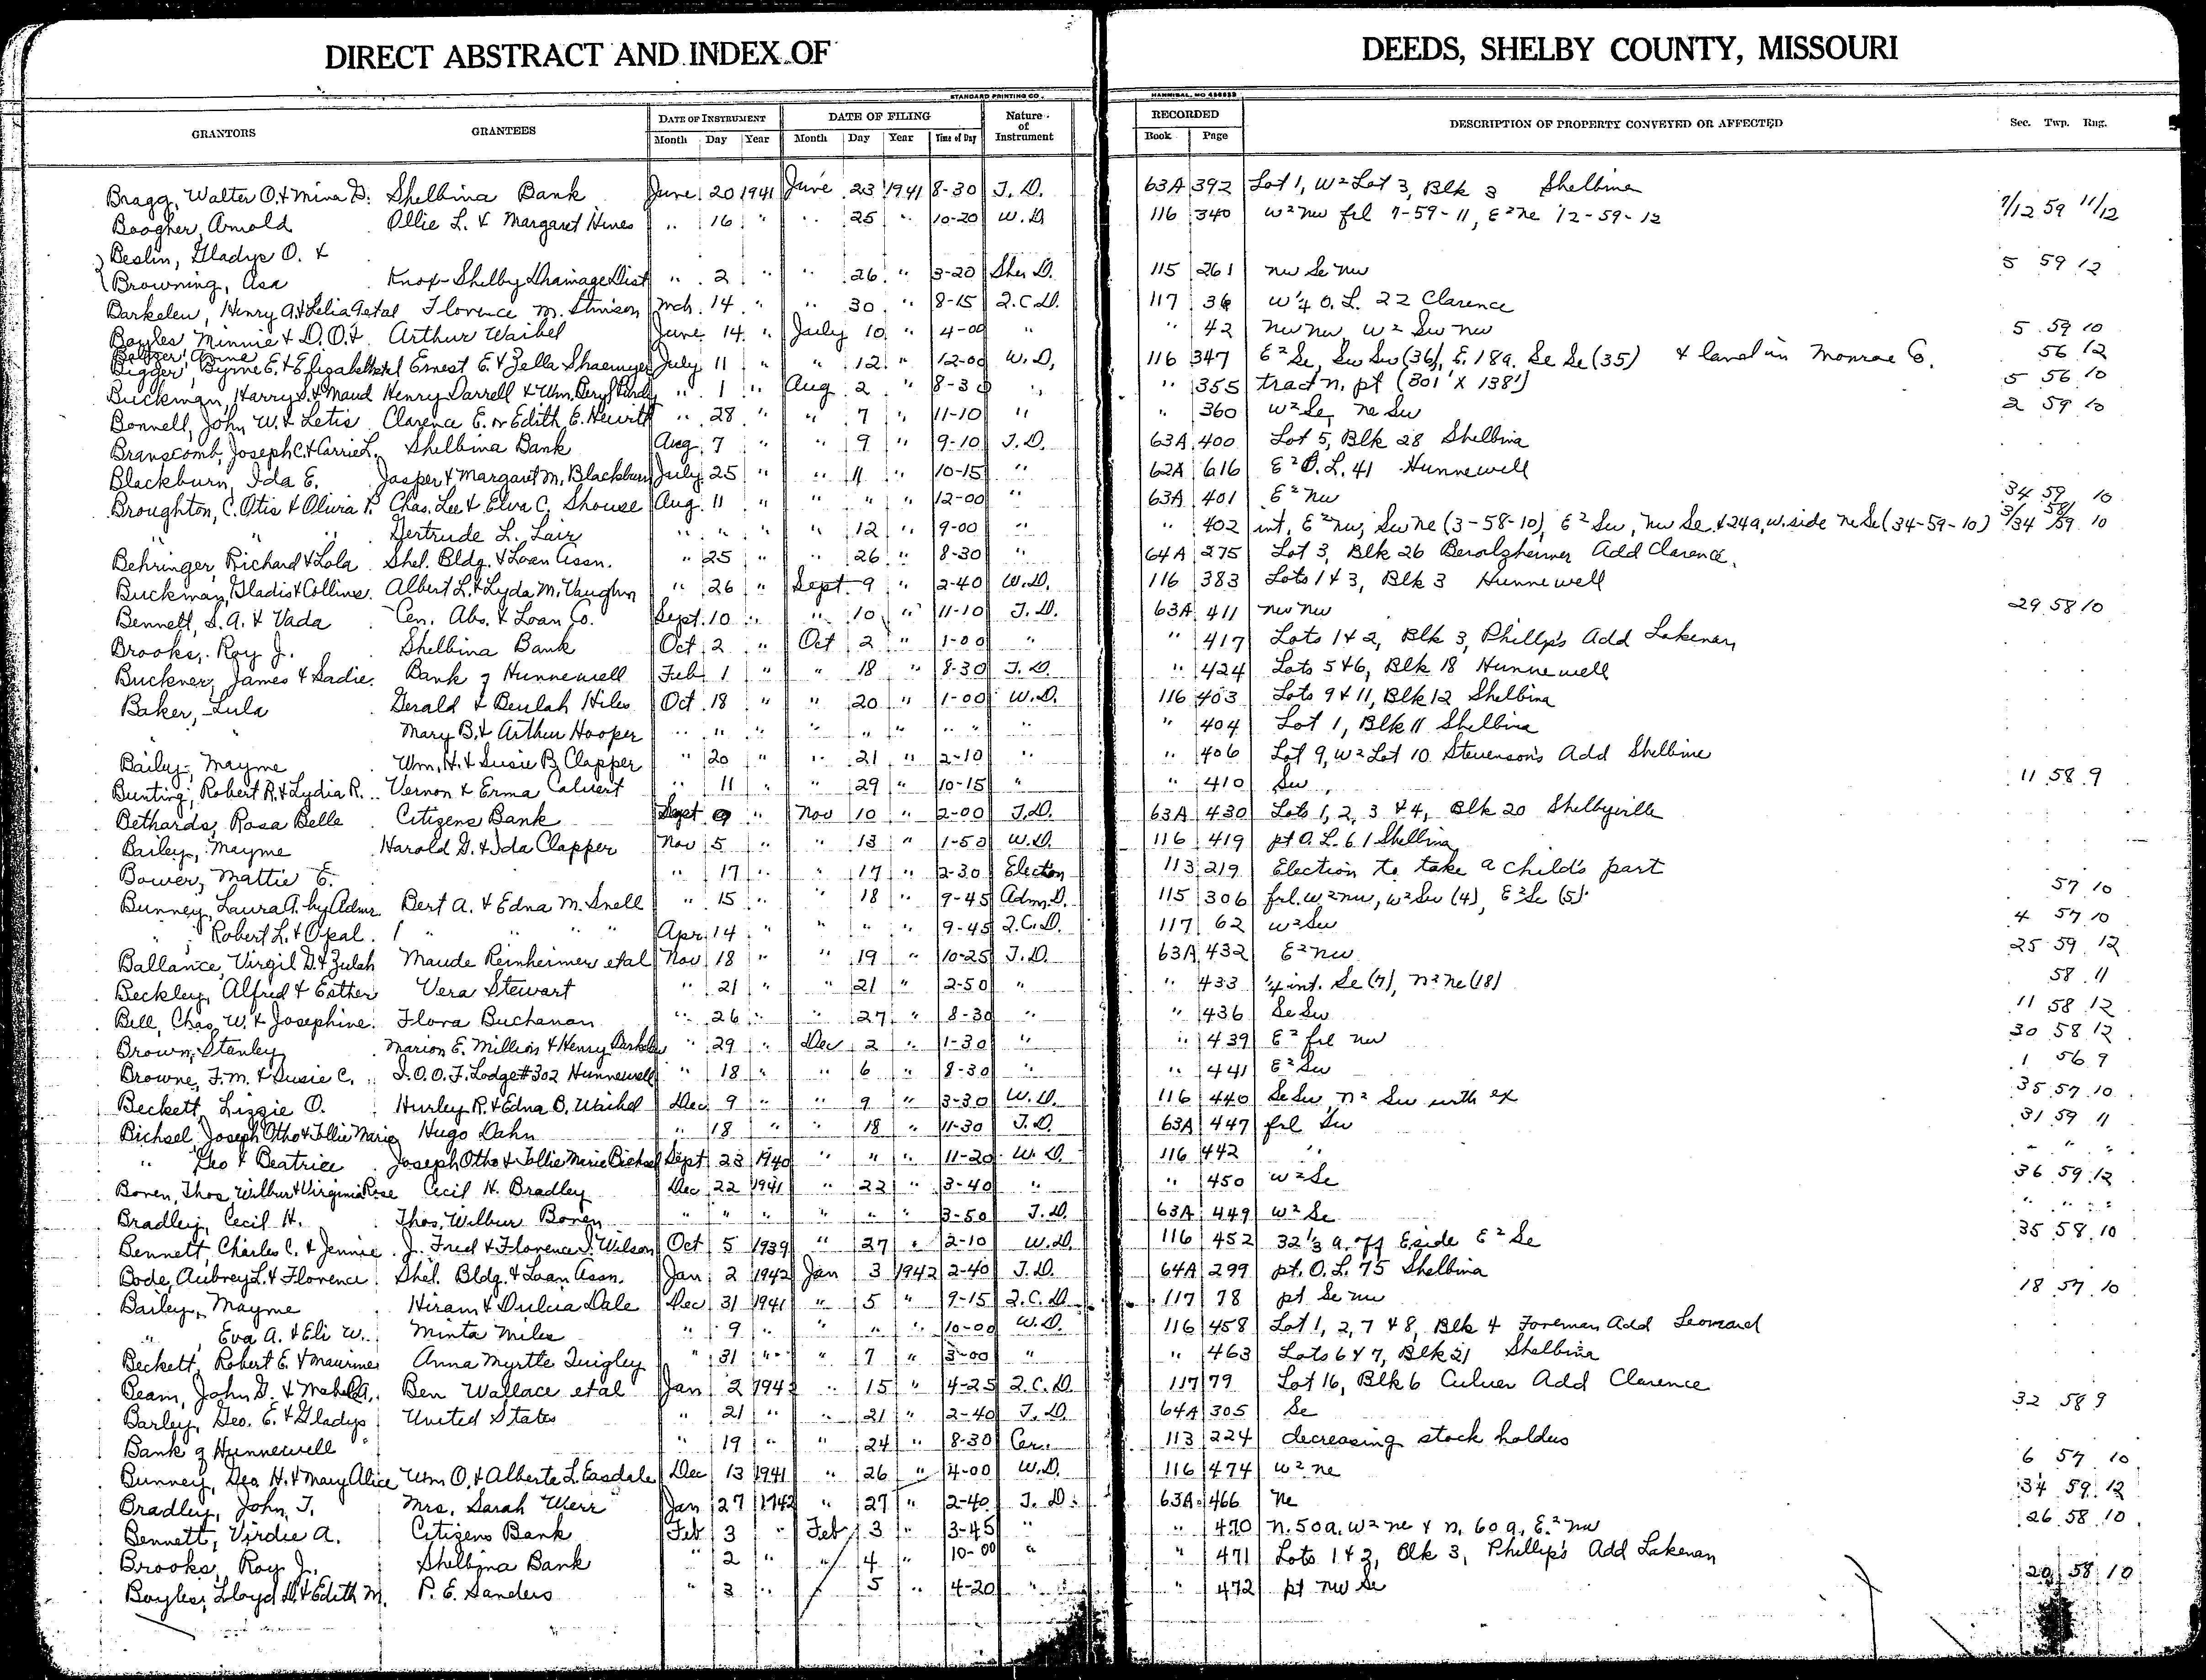 DIRECT ABSTRACT AND INDEX OF DEEDS, SHELBY COUNTY, MISSOURI
STANDARD PRINTING CO. HANNIBAL, MO
GRANTORS GRANTEES DATE OF INSTRUMENT DATE OF FILING Nature of Instrument RECORDED DESCRIPTION OF PROPERTY CONVEYED OR AFFECTED Sec. Twp. Rng.
Month Day Year Month Day Year Time of Day Book Page
Bragg, Walter O. & Mina D. Shelbina Bank June 20 1941 June 23 1941 8-30 T. D. 63A 392 Lot 1, W² Lot 3, Blk 3 Shelbina
Boogher, Arnold Ollie L. & Margaret Hines " 16 " " 25 " 10-20 W. D. 116 340 W² nw frl 7-59-11, E² ne 12-59-12 7/12 59 11/12
Beslin, Gladys O. &
Browning, Asa Knox-Shelby Drainage Dist " 2 " " 26 " 3-20 Sher D. 115 261 nw Se nw 5 59 12
Barkelew, Henry A. & Lelia A etal Florence M. Stinson Mch. 14 " " 30 " 8-15 Q.C.D. 117 36 W¼ O. L. 22 Clarence
Bayles Minnie & D. O. & Arthur Waibel June 14 " July 10 " 4-00 " " 42 nw nw, W² Sw nw 5 59 10
Baltzer, Anna
Bigger, Byrne E. & Elizabeth etal Ernest E. & Zella Shaemyer July 11 " " 12 " 12-00 W. D. 116 347 E² Se, Sw Sw (36), E. 18a. Se Se (35) & land in Monroe Co. 56 12
Buckman, Harry S. & Maud Henry Darrell & Wm. Beryl Purdy " 1 " Aug 2 " 8-30 " " 355 tract n. pt (301' X 138') 5 56 10
Bonnell, John W. & Letis Clarence E. or Edith E. Hewitt " 28 " " 7 " 11-10 " " 360 W² Se, ne Sw 2 59 10
Branscomb, Joseph C. & Carrie L. Shelbina Bank Aug 7 " " 9 " 9-10 T. D. 63A 400 Lot 5, Blk 28 Shelbina
Blackburn, Ida E. Jasper & Margaret M. Blackburn July 25 " " 11 " 10-15 " 62A 616 E² O. L. 41 Hunnewell
Broughton, C. Otis & Olivia P. Chas. Lee & Elva C. Shouse Aug. 11 " " " " 12-00 " 63A 401 E² nw 34 59 10
" " " Gertrude L. Lair " " " " 12 " 9-00 " " 402 int, E² nw, Sw ne (3-58-10), E² Sw, nw Se & 24a, w. side ne Se (34-59-10) 3/34 58/59 10
Behringer, Richard & Lola Shel. Bldg. & Loan Assn. " 25 " " 26 " 8-30 " 64A 275 Lot 3, Blk 26 Berolzheimer Add Clarence.
Buckman, Gladis & Collins Albert L. & Lyda M. Vaughn " 26 " Sept. 9 " 2-40 W. D. 116 383 Lots 1 & 3, Blk 3 Hunnewell
Bennett, S. A. & Vada Cen. Abs. & Loan Co. Sept. 10 " " 10 " 11-10 T. D. 63A 411 nw nw 29 58 10
Brooks, Roy J. Shelbina Bank Oct 2 " Oct 2 " 1-00 " " 417 Lots 1 & 2, Blk 3, Phillip's Add Lakenan
Buckner, James & Sadie Bank of Hunnewell Feb 1 " " 18 " 8-30 T. D. " 424 Lots 5 & 6, Blk 18 Hunnewell
Baker, Lula Gerald & Beulah Hiles Oct. 18 " " 20 " 1-00 W. D. 116 403 Lots 9 & 11, Blk 12 Shelbina
" Mary B. & Arthur Hooper " " " " " " " " " 404 Lot 1, Blk 11 Shelbina
Bailey, Mayme Wm. H. & Susie B. Clapper " 20 " " 21 " 2-10 " " 406 Lot 9, W² Lot 10 Stevenson's Add Shelbina
Bunting, Robert R. & Lydia R. Vernon & Erma Calvert " 11 " " 29 " 10-15 " " 410 Sw 11 58 9
Bethards, Rosa Belle Citizens Bank Sept 9 " Nov 10 " 2-00 T. D. 63A 430 Lots 1, 2, 3 & 4, Blk 20 Shelbyville
Bailey, Mayme Harold D. & Ida Clapper Nov 5 " " 13 " 1-50 W. D. 116 419 pt O. L. 61 Shelbina
Bower, Mattie E. " 17 " " 17 " 2-30 Election 113 219 Election to take a child's part
Bunney, Laura A. by Admr. Bert A. & Edna M. Snell " 15 " " 18 " 9-45 Adm. D. 115 306 frl. W² nw, W² Sw (4), E² Se (5) 57 10
" Robert L. & Opal " " " " Apr. 14 " " " " 9-45 Q.C.D. 117 62 W² Sw 4 57 10
Ballance, Virgil D. & Zulah Maude Reinheimer etal Nov 18 " " 19 " 10-25 T. D. 63A 432 E² nw 25 59 12
Beckley, Alfred & Esther Vera Stewart " 21 " " 21 " 2-50 " " 433 ¼ int. Se (7), n² ne (18) 58 11
Bell, Chas. W. & Josephine Flora Buchanan " 26 " " 27 " 8-30 " " 436 Se Sw 11 58 12
Brown, Stanley Marion E. Million & Henry Barkelew " 29 " Dec 2 " 1-30 " " 439 E² frl nw 30 58 12
Browne, F. M. & Susie C. I. O. O. F. Lodge #302 Hunnewell " 18 " " 6 " 8-30 " " 441 E² Sw 1 56 9
Beckett, Lizzie O. Hurley R. & Edna B. Waibel Dec 9 " " 9 " 3-30 W. D. 116 440 Se Sw, n² Sw with ex 35 57 10
Bichsel, Joseph Otho & Tollie Marie Hugo Dahn " 18 " " 18 " 11-30 T. D. 63A 447 frl Sw 31 59 11
" Geo & Beatrice Joseph Otho & Tollie Marie Bichsel Sept 23 1940 " " " 11-20 W. D. 116 442 " " " "
Boven, Thos Wilbur & Virginia Rose Cecil H. Bradley Dec 22 1941 " 22 " 3-40 " " 450 W² Se 36 59 12
Bradley, Cecil H. Thos. Wilbur Boven " " " " " " 3-50 T. D. 63A 449 W² Se " " "
Bennett, Charles C. & Jennie J. Fred & Florence I. Wilson Oct 5 1939 " 27 " 2-10 W. D. 116 452 32⅓ a. off E side E² Se 35 58 10
Bode, Aubrey L. & Florence Shel. Bldg. & Loan Assn. Jan 2 1942 Jan 3 1942 2-40 T. D. 64A 299 pt. O. L. 75 Shelbina
Bailey, Mayme Hiram & Dulcia Dale Dec 31 1941 " 5 " 9-15 Q.C.D. 117 78 pt Se nw 18 57 10
" Eva A. & Eli W. Minta Miles " 9 " " " " 10-00 W. D. 116 458 Lot 1, 2, 7 & 8, Blk 4 Foreman Add Leonard
Beckett, Robert E. & Maurine Anna Myrtle Quigley " 31 " " 7 " 3-00 " " 463 Lots 6 & 7, Blk 21 Shelbina
Beam, John D. & Mabel A. Ben Wallace etal Jan 2 1942 " 15 " 4-25 Q.C.D. 117 79 Lot 16, Blk 6 Culver Add Clarence
Barley, Geo. E. & Gladys United States " 21 " " 21 " 2-40 T. D. 64A 305 Se 32 58 9
Bank of Hunnewell " 19 " " 24 " 8-30 Cer. 113 224 decreasing stock holders
Bunney, Geo. H. & Mary Alice Wm O. & Alberta L. Easdale Dec 13 1941 " 26 " 4-00 W. D. 116 474 W² ne 6 57 10
Bradley, John T. Mrs. Sarah Werr Jan 27 1942 " 27 " 2-40 T. D. 63A 466 ne 34 59 12
Bennett, Virdie A. Citizens Bank Feb 3 " Feb 3 " 3-45 " " 470 n. 50a. W² ne & n. 60a, E² nw 26 58 10
Brooks, Roy J. Shelbina Bank " 2 " " 4 " 10-00 " " 471 Lots 1 & 2, Blk 3, Phillip's Add Lakenan
Bayles, Lloyd D. & Edith M. P. E. Sanders " 3 " " 5 " 4-20 " " 472 pt nw Se 20 58 10